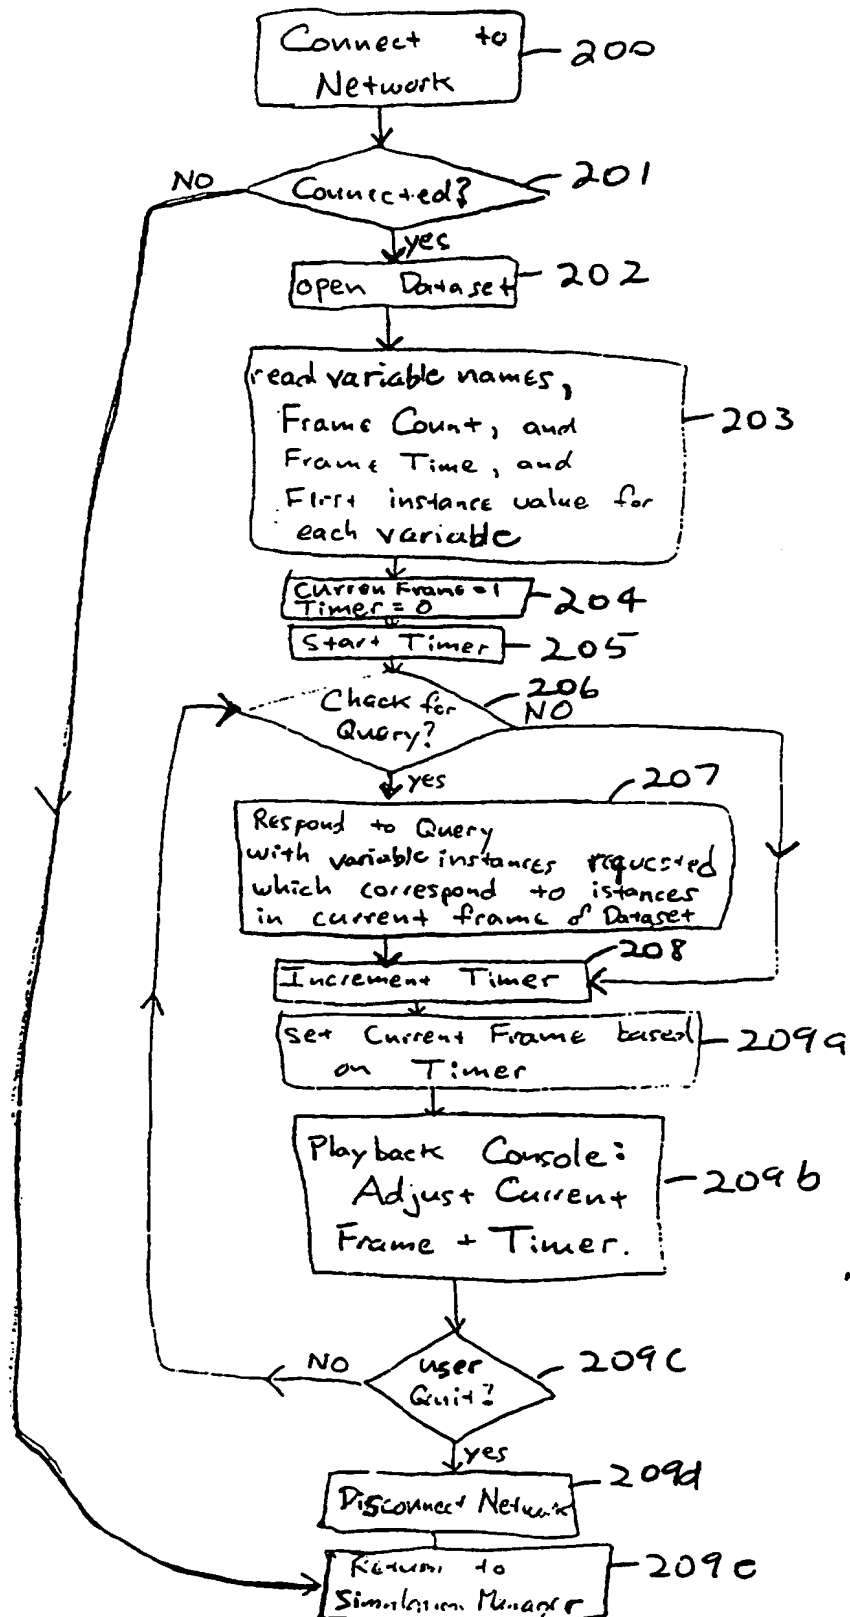 Connect to
Network
200
NO
Connected?
201
yes
open Dataset
202
read variable names,
Frame Count, and
Frame Time, and
First instance value for
each variable
203
Curren Frame = 1
Timer = 0
204
Start Timer
205
206
Check for
Query?
NO
yes
207
Respond to Query
with variable instances requested
which correspond to istances
in current frame of Dataset
208
Increment Timer
set Current Frame based
on Timer
209a
Playback Console:
Adjust Current
Frame + Timer.
209b
NO
user
Quit?
209c
yes
Disconnect Network
209d
Return to
Simulation Manager
209e